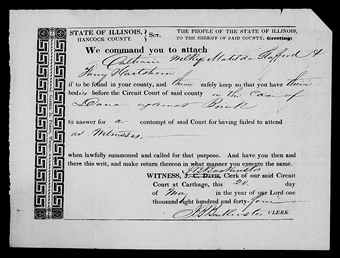 STATE OF ILLINOIS,
HANCOCK COUNTY.
Sct.
THE PEOPLE OF THE STATE OF ILLINOIS,
TO THE SHERIFF OF SAID COUNTY, Greeting:
We command you to attach
Matilda Stafford
to be found in your county, and them safely keep so that you have their
bodies before the Circuit Court of said county in the case of
against
to answer for a contempt of said Court for having failed to attend
as Witnesses
when lawfully summoned and called for that purpose. And have you then and
there this writ, and make return thereon in what manner you execute the same.
WITNESS, J. C. DAVIS, Clerk of our said Circuit
Court at Carthage, this 20 day
of May in the year of our Lord one
thousand eight hundred and forty-four
CLERK.